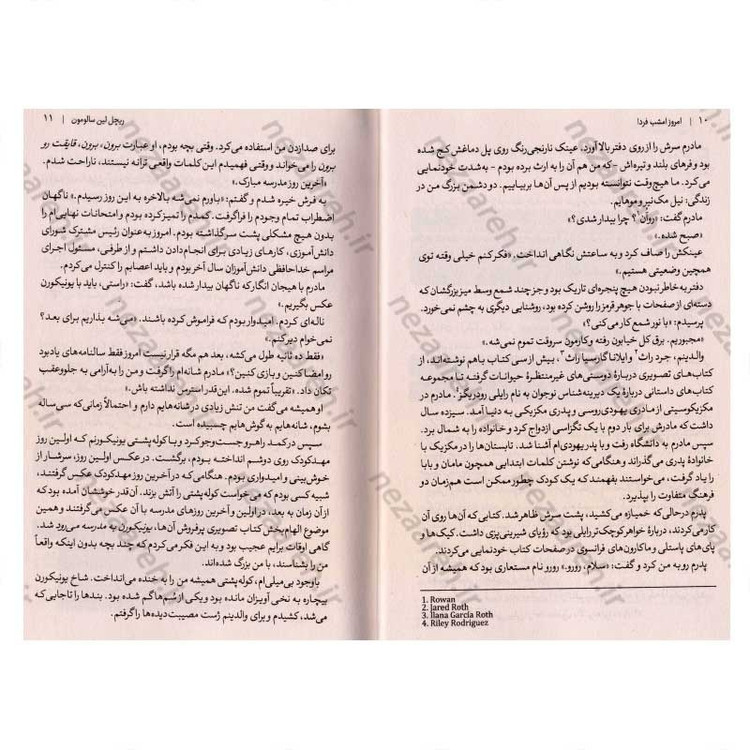 ۱۰ | امروز امشب فردا
مادرم سرش را از روی دفتر بالا آورد. عینک نارنجی‌رنگ روی پل دماغش کج شده
بود و فرهای بلند و تیره‌اش – که من هم آن را به ارث برده بودم – به‌شدت خودنمایی
می‌کرد. ما هیچ‌وقت نتوانسته بودیم از پس آن‌ها بربیاییم. دو دشمن بزرگ من در
زندگی: نیل مک‌نیر و موهایم.
مادرم گفت: «روآن¹؟ چرا بیدار شدی؟»
«صبح شده.»
عینکش را صاف کرد و به ساعتش نگاهی انداخت. «فکر کنم خیلی وقته توی
همچین وضعیتی هستیم.»
دفتر به خاطر نبودن هیچ پنجره‌ای تاریک بود و جز چند شمع وسط میز بزرگشان که
دسته‌ای از صفحات با جوهر قرمز را روشن کرده بود، روشنایی دیگری به چشم نمی‌خورد.
پرسیدم: «با نور شمع کار می‌کنی؟»
«مجبوریم. برق کل خیابون رفته و کارمون سروقت تموم نمی‌شه.»
والدینم، جرد راث² و ایلانا گارسیا راث³، بیش از سی کتاب باهم نوشته‌اند، از
کتاب‌های تصویری دربارهٔ دوستی‌های غیرمنتظرهٔ حیوانات گرفته تا مجموعه
کتاب‌های داستانی دربارهٔ یک دیرینه‌شناس نوجوان به نام رایلی رودریگز⁴. مادرم در
مکزیکوسیتی از مادری یهودی‌روسی و پدری مکزیکی به دنیا آمد. سیزده سال
داشت که مادرش برای بار دوم با یک تگزاسی ازدواج کرد و خانواده را به شمال برد.
سپس مادرم به دانشگاه رفت و با پدر یهودی‌ام آشنا شد. تابستان‌ها را در مکزیک با
خانوادهٔ پدری می‌گذراند و هنگامی‌که نوشتن کلمات ابتدایی همچون مامان و بابا
را یاد گرفت، می‌خواستند بفهمند که یک کودک چطور ممکن است هم‌زمان دو
فرهنگ متفاوت را بپذیرد.
پدرم درحالی‌که خمیازه می‌کشید، پشت سرش ظاهر شد. کتابی که آن‌ها روی آن
کار می‌کردند، دربارهٔ خواهر کوچک‌تر رایلی بود که رؤیای شیرینی‌پزی داشت. کیک‌ها و
پای‌های پاستلی و ماکارون‌های فرانسوی در صفحات کتاب خودنمایی می‌کردند.
پدرم رو به من کرد و گفت: «سلام، رورو.» رورو نام مستعاری بود که همیشه از آن
1. Rowan
2. Jared Roth
3. Ilana García Roth
4. Riley Rodriguez
ریچل لین سالومون | ۱۱
برای صدازدن من استفاده می‌کرد. وقتی بچه بودم، او عبارت برون، برون، قایقت رو
برون را می‌خواند و وقتی فهمیدم این کلمات واقعی ترانه نیستند، ناراحت شدم.
«آخرین روز مدرسه مبارک.»
به فرش خیره شدم و گفتم: «باورم نمی‌شه بالاخره به این روز رسیدم.» ناگهان
اضطراب تمام وجودم را فراگرفت. کمدم را تمیز کرده بودم و امتحانات نهایی‌ام را
بدون هیچ مشکلی پشت سر گذاشته بودم. امروز به‌عنوان رئیس مشترک شورای
دانش‌آموزی، کارهای زیادی برای انجام‌دادن داشتم و از طرفی، مسئول اجرای
مراسم خداحافظی دانش‌آموزان سال آخر بودم و باید اعصابم را کنترل می‌کردم.
مادرم با هیجان انگار که ناگهان بیدار شده باشد، گفت: «راستی، باید با یونیکورن
عکس بگیریم.»
ناله‌ای کردم. امیدوار بودم که فراموش کرده باشند. «می‌شه بذاریم برای بعد؟
نمی‌خوام دیر کنم.»
«فقط ده ثانیه طول می‌کشه، بعد هم مگه قرار نیست امروز فقط سالنامه‌های یادبود
رو امضا کنین و بازی کنین؟» مادرم شانه‌ام را گرفت و من را به‌آرامی به جلو‌و‌عقب
تکان داد. «تقریباً تموم شده. این‌قدر استرس نداشته باش.»
او همیشه می‌گفت من تنش زیادی در شانه‌هایم دارم و احتمالاً زمانی که سی‌ساله
بشوم، شانه‌هایم به گوش‌هایم چسبیده است.
سپس در کمد راهرو جست‌وجو کرد و با کوله‌پشتی یونیکورنم که اولین روز
مهدکودک روی دوشم انداخته بودم، برگشت. در عکس‌های اولین روز، سرشار از
خوش‌بینی و امیدواری بودم. هنگامی‌که در آخرین روز مهدکودک عکس گرفتند،
شبیه کسی بودم که می‌خواست کوله‌پشتی را آتش بزند. آن‌قدر خوششان آمده بود که
از آن زمان به بعد، در اولین و آخرین روزهای مدرسه با آن عکس می‌گرفتند و همین
موضوع الهام‌بخش کتاب تصویری پرفروش آن‌ها، یونیکورن به مدرسه می‌رود شد.
گاهی اوقات برایم عجیب بود و به این فکر می‌کردم که چند بچه بدون اینکه واقعاً
من را بشناسند، با من بزرگ شده‌اند.
باوجود بی‌میلی‌ام، کوله‌پشتی همیشه من را به خنده می‌انداخت. شاخ یونیکورن
بیچاره به نخی آویزان مانده بود و یکی از سُم‌ها گم شده بود. بندها را تا جایی که
می‌شد، کشیدم و برای والدینم ژست مصیبت‌دیده‌ها را گرفتم.
nezaareh.ir